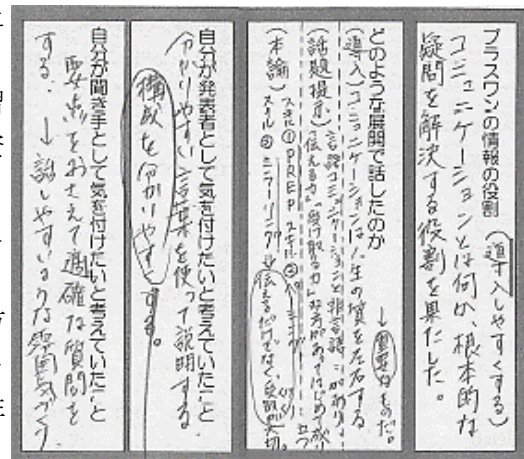 プラスワンの情報の役割（導入しやすくする）
コミュニケーションとは何か、根本的な
疑問を解決する役割を果たした。
どのような展開で話したのか
→重要なものだ。
（導入）コミュニケーションは人生の質を左右する
言語コミュニケーションと非言語〃があり、
（話題提示）「伝える力」「受け取る力」両方があってはじめて成り立つ
（本論）スキル① PREP スキル②
スキル③ ミラーリング 伝えるだけでなく、
自分が発表者として気を付けたいと考えていたこと
分かりやすい言葉を使って説明する
構成を分かりやすくする。
自分が聞き手として気を付けたいと考えていたこと
要点をおさえて適確な質問を
する。→話しやすいような雰囲気づくり